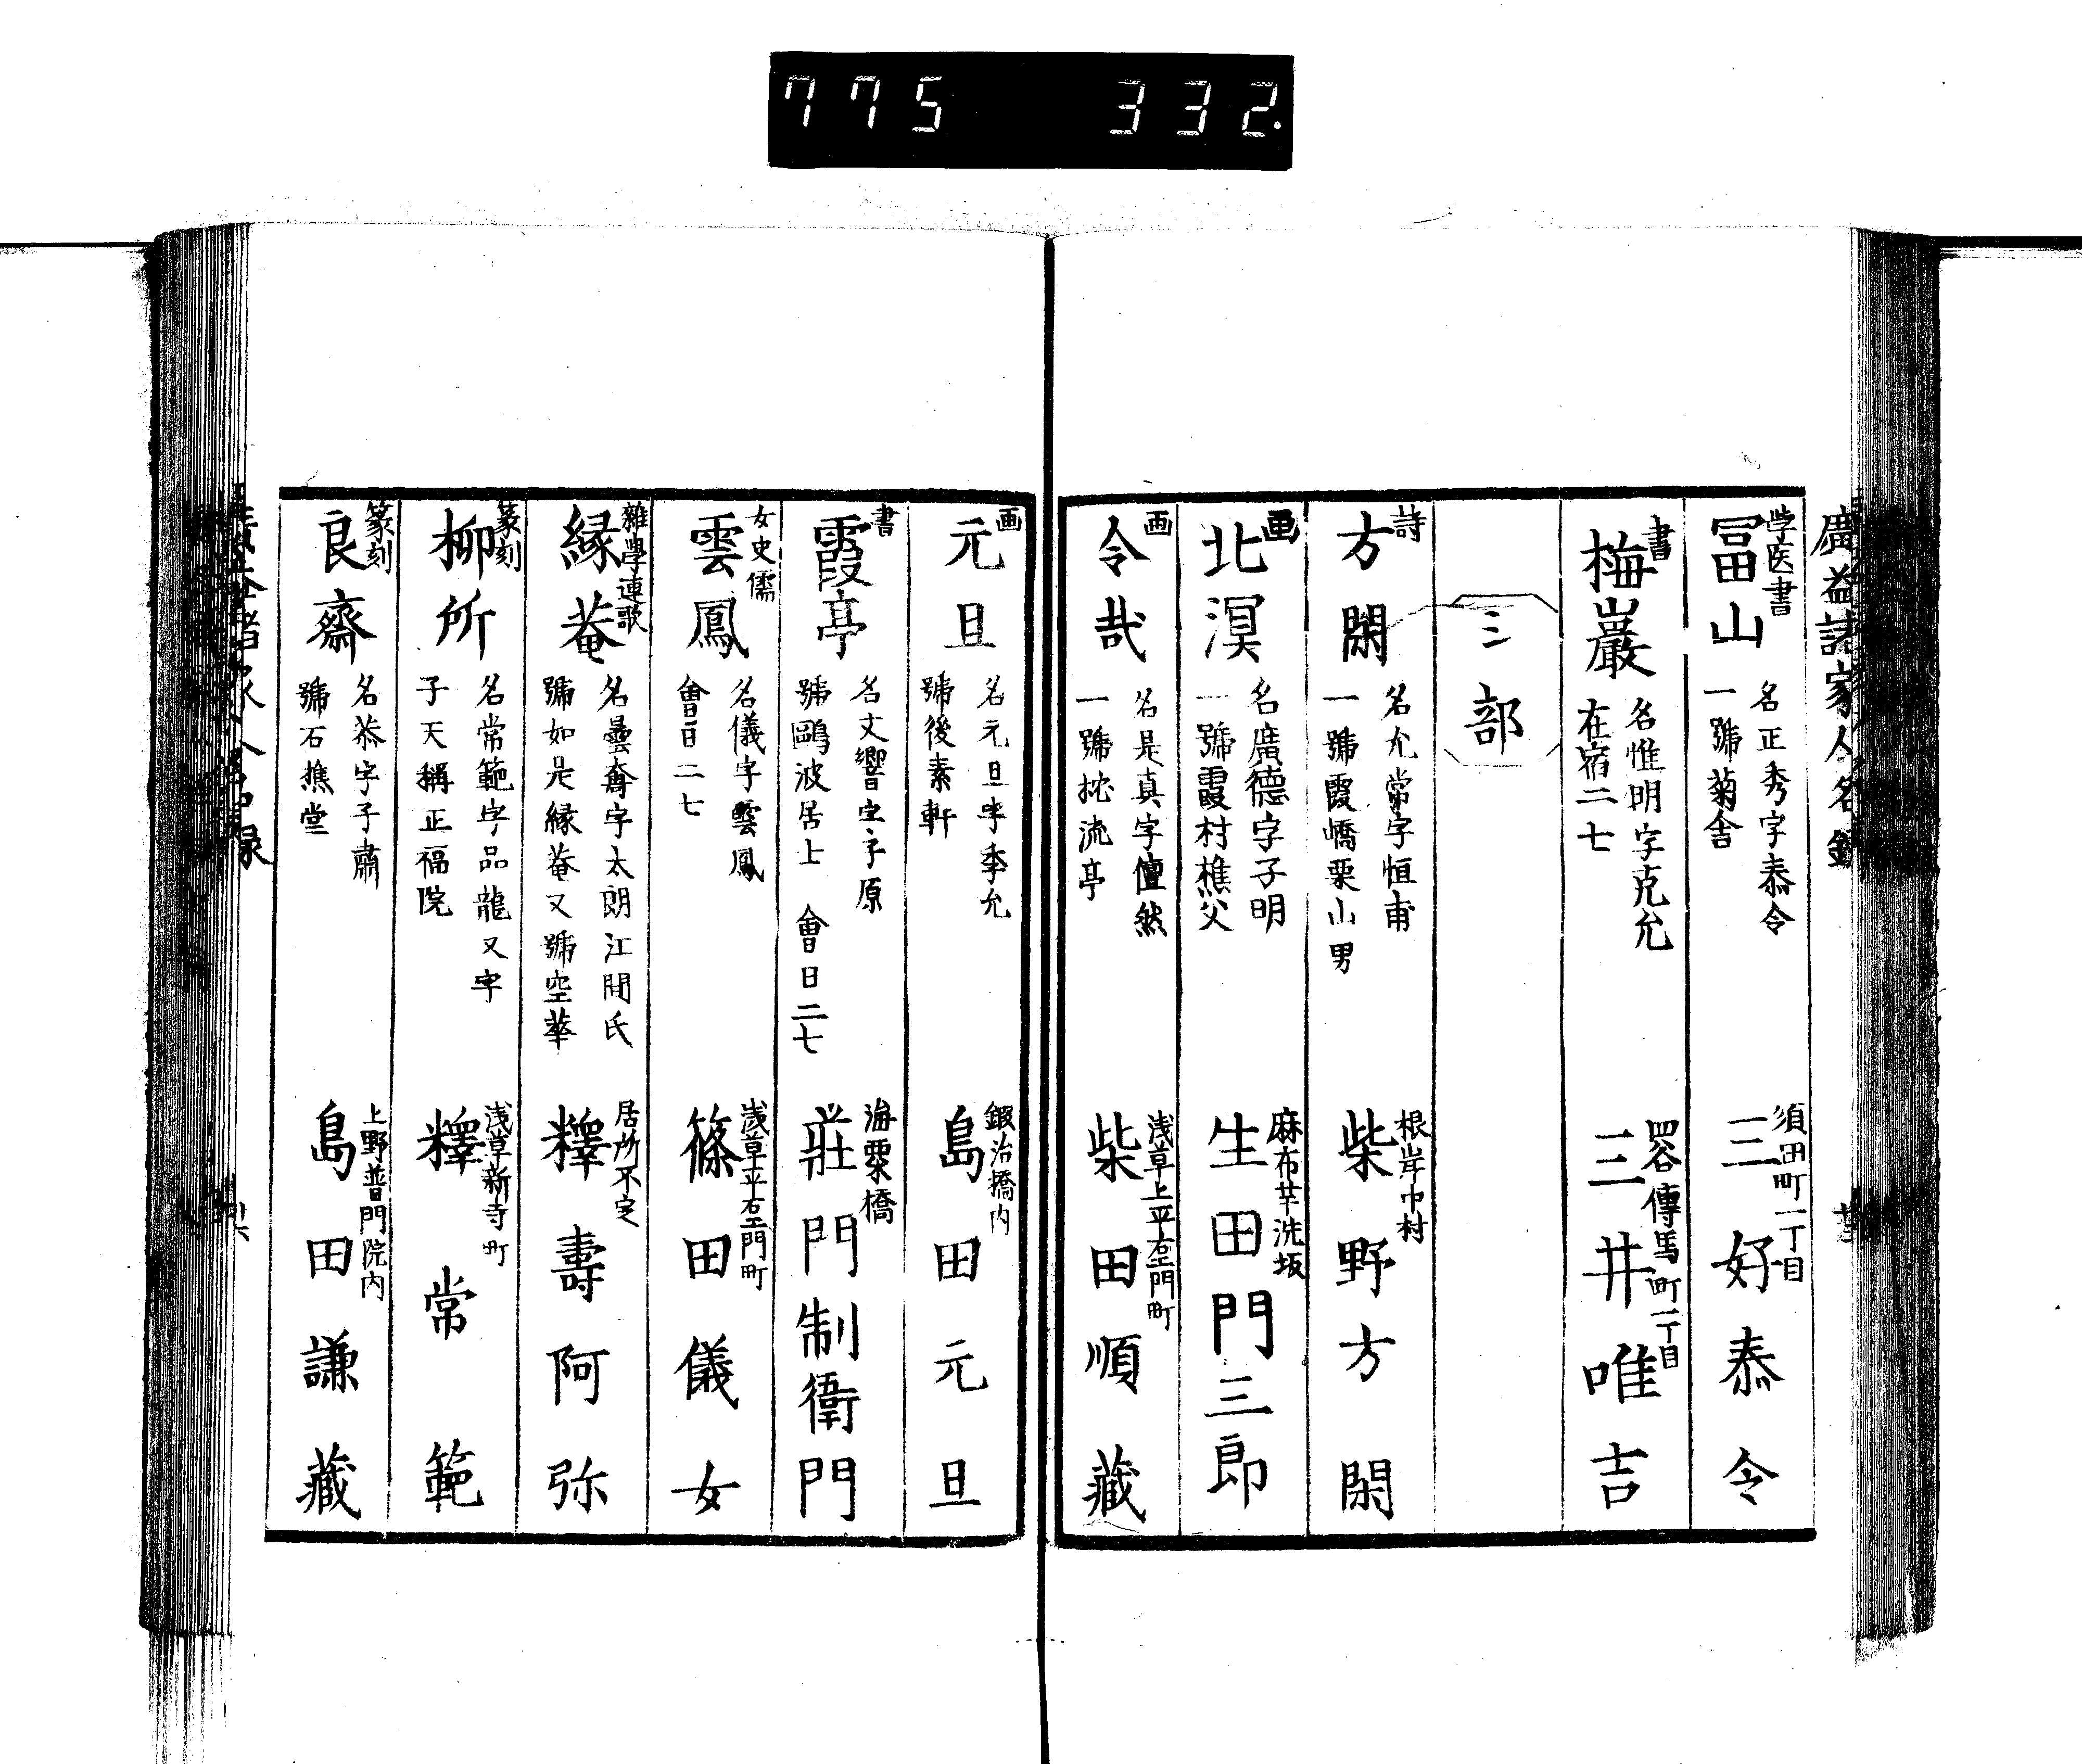 775 332.
廣益諸家人名録
学医書
冨山
名正秀字泰令
一號菊舎
須田町一丁目
三好泰令
書
梅巖
名惟明字克允
在宿二七
四谷傳馬町一丁目
三井唯吉
ミ部
詩
方閑
名允常字恒甫
一號霞嶠栗山男
根岸中村
柴野方閑
画
北溟
名廣德字子明
一號霞村樵父
麻布芋洗坂
生田門三郎
画
令哉
名是真字儃然
一號枕流亭
浅草上平右エ門町
柴田順藏
画
元旦
名元旦字季允
號後素軒
鍜冶橋内
島田元旦
書
霞亭
名文響字子原
號鷗波居士 會日二七
海粟橋
莊門制衞門
女史儒
雲鳳
名儀字雲鳳
會日二七
浅草平右エ門町
篠田儀女
雜學連歌
縁菴
名曇奝字太朗江間氏
號如是縁菴又號空華
居所不定
釋壽阿弥
篆刻
柳所
名常範字品龍又字
子天稱正福院
浅草新寺町
釋常範
篆刻
良齋
名恭字子肅
號石樵堂
上野普門院内
島田謙藏